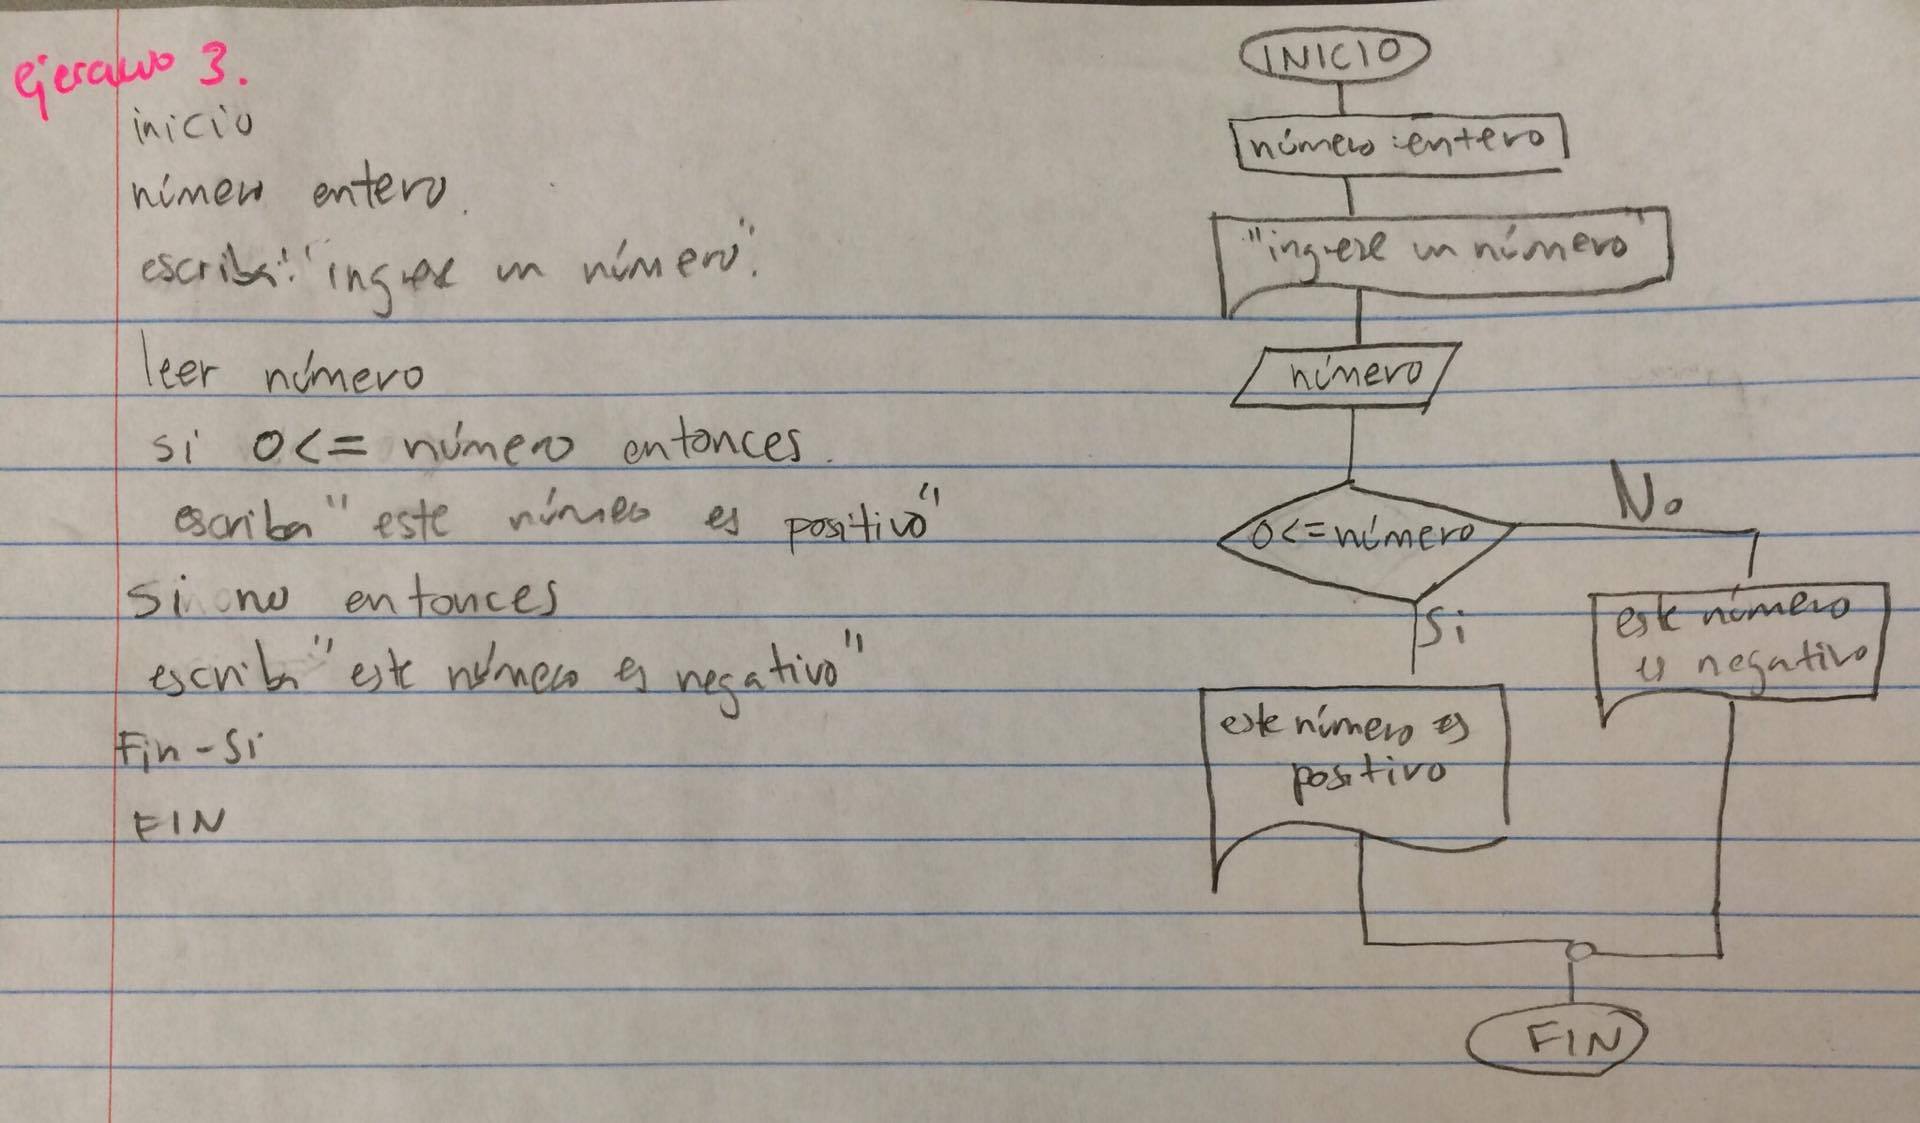 ejercicio 3.
inicio
número entero.
escriba: "ingrese un número".
leer número
si 0<= número entonces.
escriba "este número es positivo"
Si no entonces
escriba "este número es negativo"
Fin-Si
FIN
INICIO
número :entero
"ingrese un número"
número
0<=número
No
Si
este número
es negativo
este número es
positivo
FIN